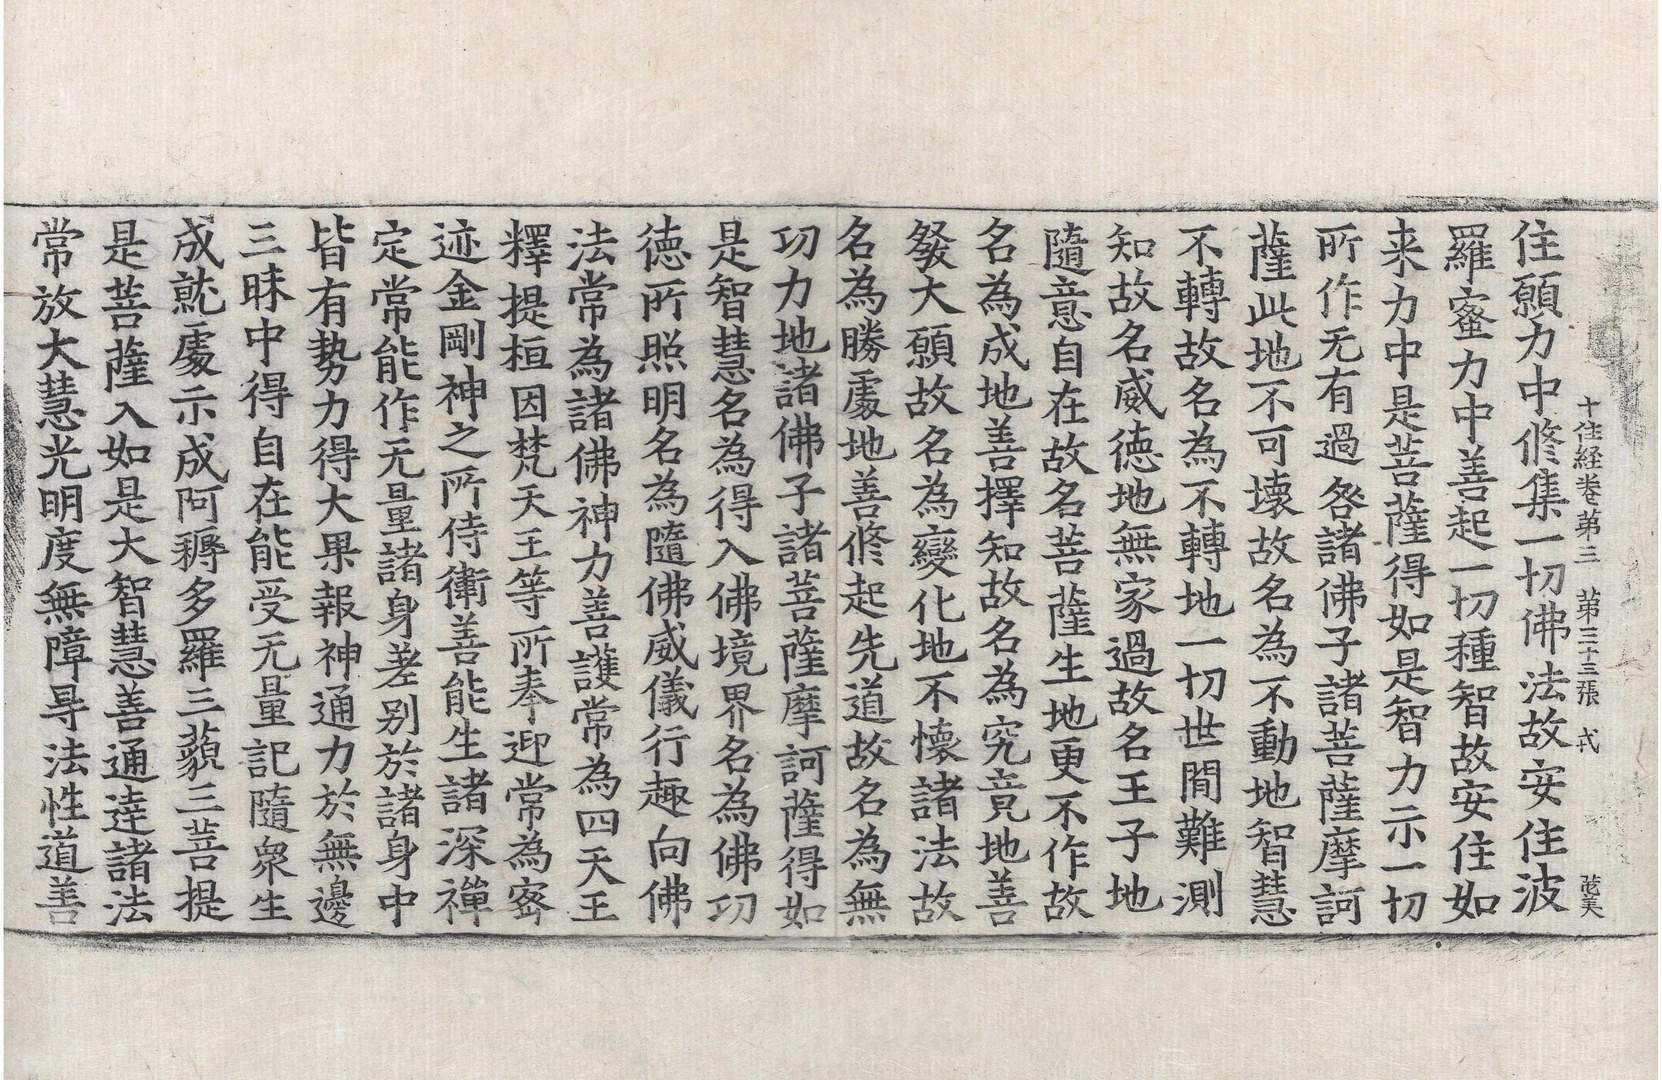 十住経卷第三　第三十三張　弍
住願力中修集一切佛法故安住波
羅蜜力中善起一切種智故安住如
来力中是菩薩得如是智力示一切
所作无有過咎諸佛子諸菩薩摩訶
薩此地不可壞故名為不動地智慧
不轉故名為不轉地一切世間難測
知故名威德地無家過故名王子地
隨意自在故名菩薩生地更不作故
名為成地善擇知故名為究竟地善
發大願故名為變化地不懷諸法故
名為勝處地善修起先道故名為無
功力地諸佛子諸菩薩摩訶薩得如
是智慧名為得入佛境界名為佛功
德所照明名為隨佛威儀行趣向佛
法常為諸佛神力善護常為四天王
釋提桓因梵天王等所奉迎常為密
迹金剛神之所侍衛善能生諸深禪
定常能作无量諸身差别於諸身中
皆有势力得大果報神通力於無邊
三昧中得自在能受无量記隨衆生
成就處示成阿耨多羅三藐三菩提
是菩薩入如是大智慧善通達諸法
常放大慧光明度無障㝵法性道善